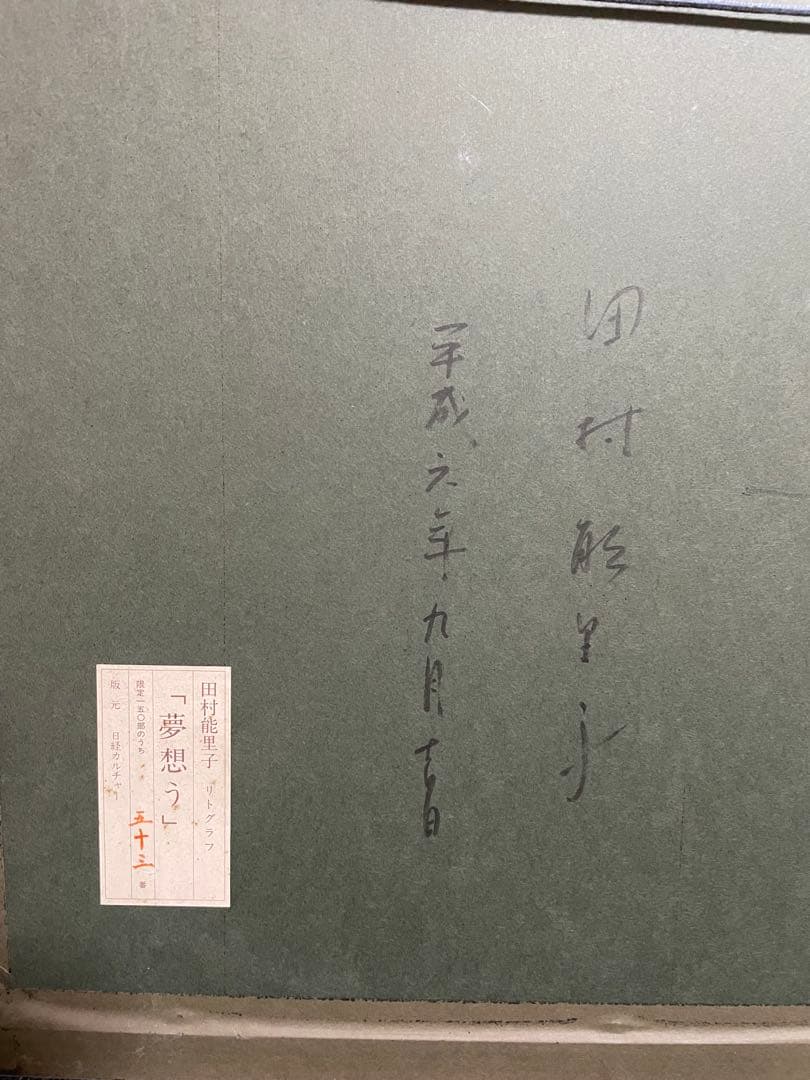 田村能里子
平成六年九月吉日
田村能里子 リトグラフ
「夢想う」
限定一五〇部のうち 五十三 番
版元 日経カルチャー